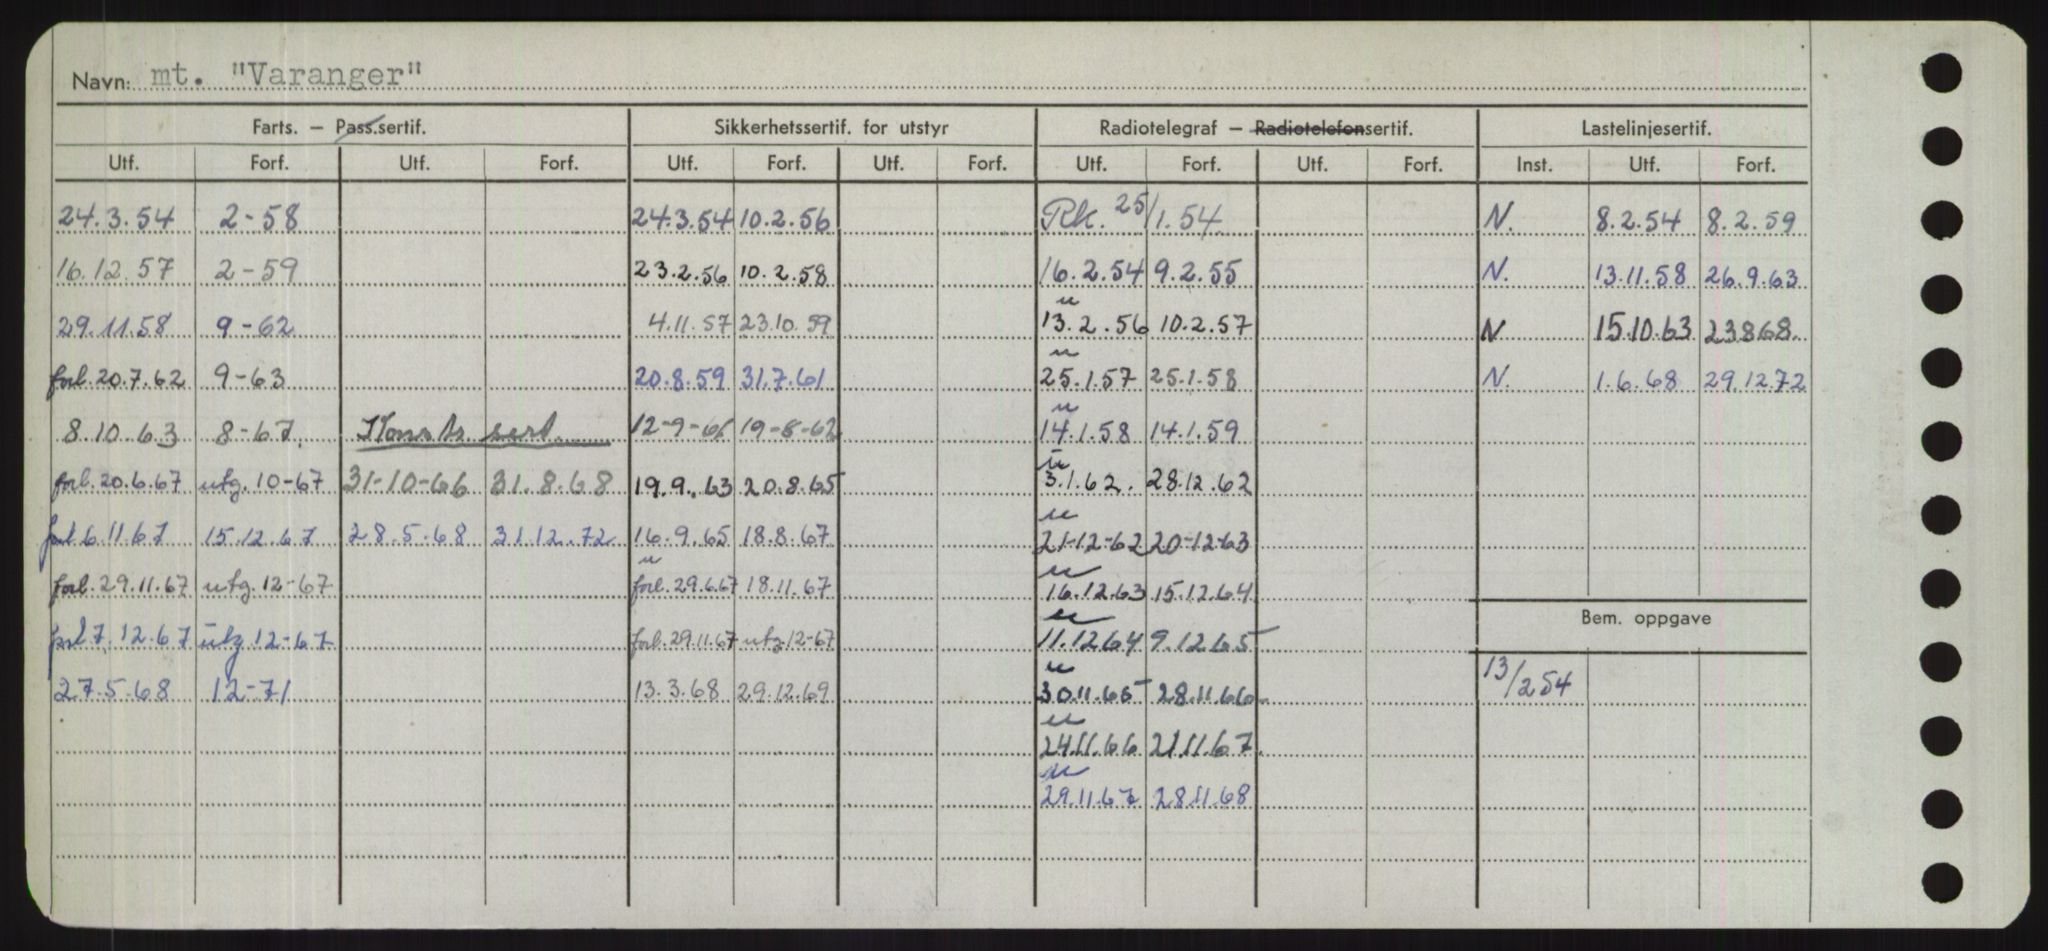 Navn: mt. "Varanger"
Farts. – Pass.sertif. Sikkerhetssertif. for utstyr Radiotelegraf – Radiotelefonsertif. Lastelinjesertif.
Utf. Forf. Utf. Forf. Utf. Forf. Utf. Forf. Utf. Forf. Utf. Forf. Inst. Utf. Forf.
24.3.54 2-58 24.3.54 10.2.56 Rk. 25/1.54 N. 8.2.54 8.2.59
16.12.57 2-59 23.2.56 10.2.58 16.2.54 9.2.55 N. 13.11.58 26.9.63
u
29.11.58 9-62 4.11.57 23.10.59 13.2.56 10.2.57 N 15.10.63 23868.
u
forl. 20.7.62 9-63 20.8.59 31.7.61 25.1.57 25.1.58 N. 1.6.68 29.12.72
u
8.10.63 8-67. Konstr. sert. 12-9-61 19-8-62 14.1.58 14.1.59
u
forl. 20.6.67 utg. 10-67 31-10-66 31.8.68 19.9.63 20.8.65 3.1.62. 28.12.62
u
forl 6.11.67 15.12.67 28.5.68 31.12.72 16.9.65 18.8.67 21-12-62 20-12-63
u u
forl. 29.11.67 utg. 12-67 forl. 29.6.67 18.11.67 16.12.63 15.12.64
u
forl 7.12.67 utg 12-67 forl. 29.11.67 utg 12-67 11.12.64 9.12.65
Bem. oppgave
u
27.5.68 12-71 13.3.68 29.12.69 30.11.65 28.11.66 13/2 54
u
24.11.66 21.11.67.
u
29.11.67 28.11.68